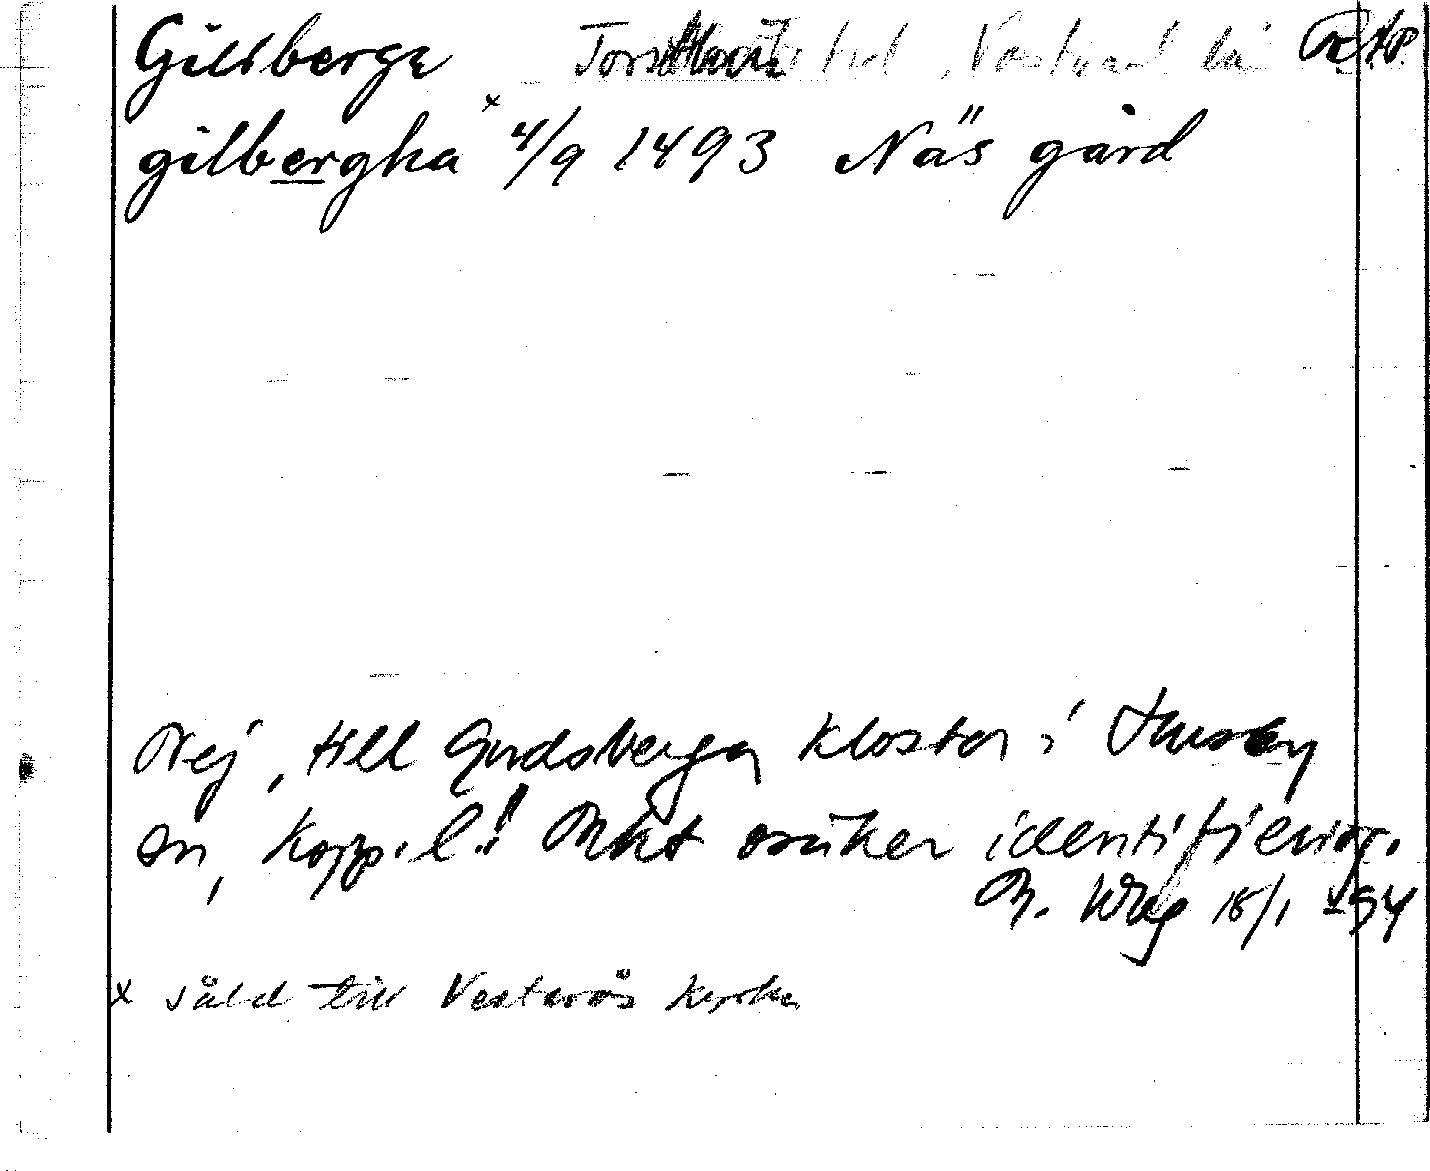 Gillberga Torstuna hd, Västmanl. län RAp.
gilbergha x 4/9 1493 Näs gård
Nej, till Gudsberga kloster i Husby
sn, Kopp. l.! Mkt osäker identifiering.
M. Wbg 18/1 -54
x såld till Vesterås kyrka